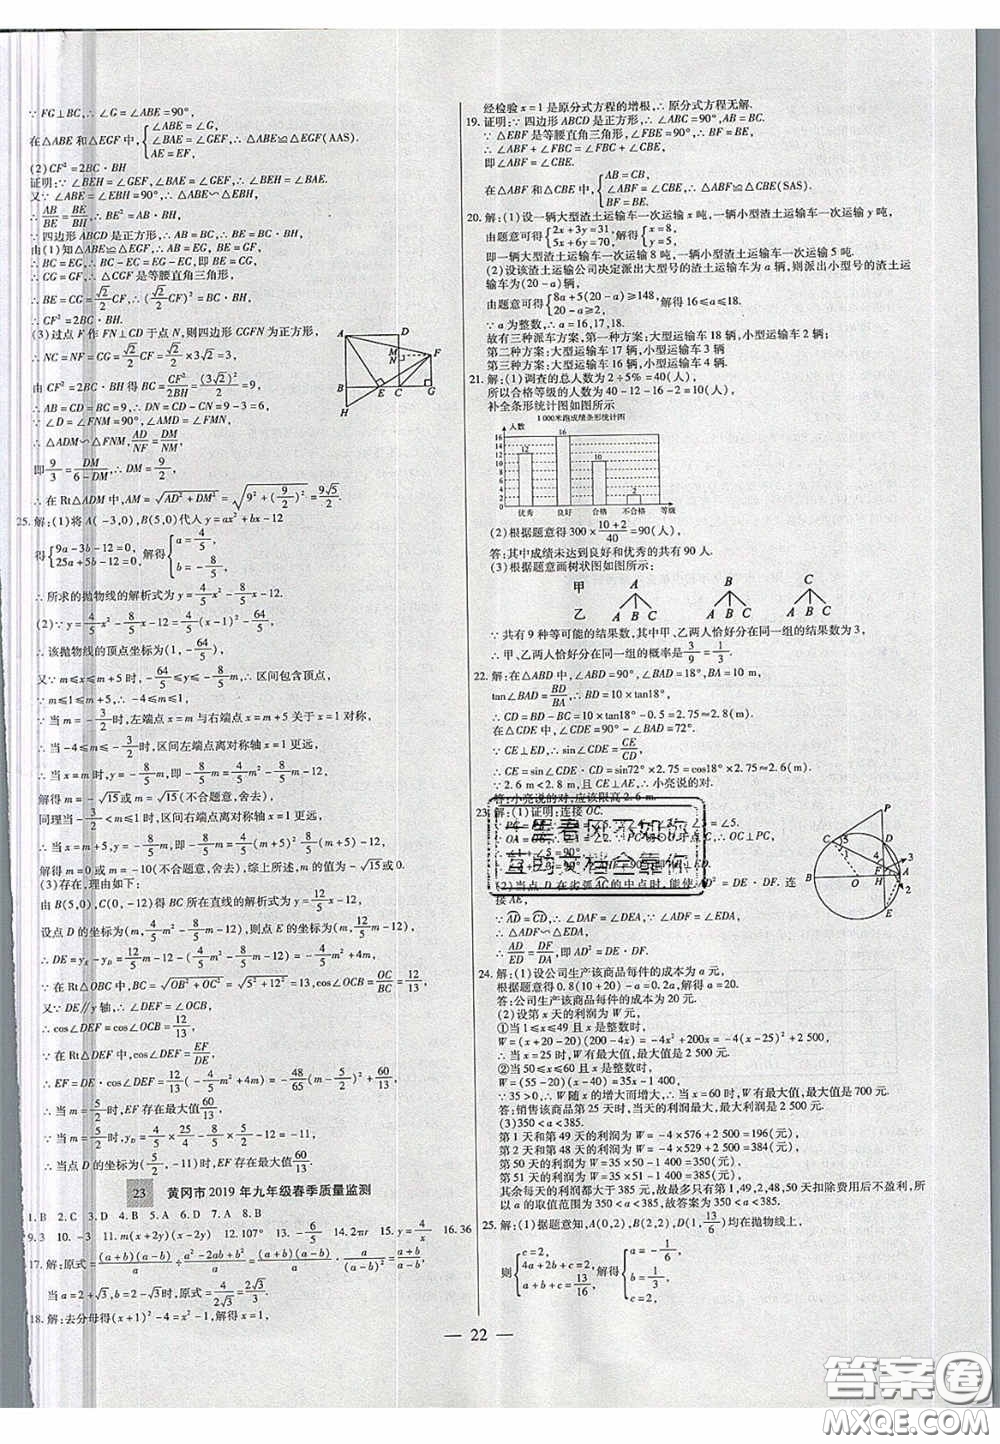 ∵ FG⊥BC,∴ ∠G=∠ABE=90°,
在△ABE 和△EGF 中,{∠ABE=∠G, ∠BAE=∠GEF,∴ △ABE≌△EGF(AAS). AE=EF,
(2)CF²=2BC·BH
证明:∵ ∠BEH=∠GEF,∠BAE=∠GEF,∴ ∠BEH=∠BAE.
又∵ ∠ABE=∠EBH=90°,∴ △ABE∽△EBH,
∴ AB/BE=BE/BH,∴ BE²=AB·BH,
∵ 四边形 ABCD 是正方形,∴ AB=BC,∴ BE²=BC·BH,
由(1)知△ABE≌△EGF,∴ AB=EG,BE=GF,
∴ BC=EG,∴ BC-EC=EG-EC,即 BE=CG,
∴ CG=GF,∴ △CGF 是等腰直角三角形,
∴ BE=CG=√2/2 CF,∴ (√2/2 CF)²=BC·BH,
∴ CF²=2BC·BH.
(3)过点 F 作 FN⊥CD 于点 N,则四边形 CGFN 为正方形,
∴ NC=NF=CG=√2/2 CF=√2/2×3√2=3,
由 CF²=2BC·BH 得 BC=CF²/2BH=(3√2)²/2=9,
∴ AD=CD=BC=9,∴ DN=CD-CN=9-3=6,
∵ ∠D=∠FNM=90°,∠AMD=∠FMN,
∴ △ADM∽△FNM,AD/NF=DM/NM,
即 9/3=DM/6-DM,∴ DM=9/2,
∴ 在 Rt△ADM 中,AM=√AD²+DM²=√9²+(9/2)²=9√5/2.
25.解:(1)将 A(-3,0),B(5,0)代人 y=ax²+bx-12
得{9a-3b-12=0, 25a+5b-12=0, 解得{a=4/5, b=-8/5,
∴ 所求的抛物线的解析式为 y=4/5x²-8/5x-12.
(2)∵ y=4/5x²-8/5x-12=4/5(x-1)²-64/5,
∴ 该抛物线的顶点坐标为(1,-64/5),
又∵ m≤x≤m+5 时,-64/5≤y≤-8/5m,∴ 区间包含顶点,
∵ m≤1≤m+5,∴ -4≤m≤1,
∴ 当 m=-3/2时,左端点 x=m 与右端点 x=m+5 关于 x=1 对称,
∴ 当-4≤m≤-3/2时,区间左端点离对称轴 x=1 更远,
∴ 当 x=m 时,y=-8/5m,即-8/5m=4/5m²-8/5m-12,
解得 m=-√15或 m=√15(不合题意,舍去),
同理当-3/2<m≤1 时,区间右端点离对称轴 x=1 更远,
∴ 当 x=m+5 时,y=-8/5m,即-8/5m=4/5(m+5)²-8/5(m+5)-12,
解得 m=0 或 m=-10(不合题意,舍去),综上所述,m 的值为-√15或 0.
(3)存在,理由如下:
由 B(5,0),C(0,-12)得 BC 所在直线的解析式为 y=12/5x-12,
设点 D 的坐标为(m,4/5m²-8/5m-12),则点 E 的坐标为(m,12/5m-12),
∴ DE=yE-yD=12/5m-12-(4/5m²-8/5m-12)=-4/5m²+4m,
∵ 在 Rt△OBC 中,BC=√OB²+OC²=√5²+12²=13,∴ cos∠OCB=OC/BC=12/13,
又∵ DE∥y 轴,∴ ∠DEF=∠OCB,
∴ cos∠DEF=cos∠OCB=12/13,
∵ 在 Rt△DEF 中,cos∠DEF=EF/DE,
∴ EF=DE·cos∠DEF=12/13(-4/5m²+4m)=-48/65(m-5/2)²+60/13,
∴ 当 m=5/2时,EF 存在最大值60/13
∵ 当 m=5/2时,yD=4/5×25/4-8/5×5/2-12=-11,
∴ 当点 D 的坐标为(5/2,-11)时,EF 存在最大值60/13.
23 黄冈市 2019 年九年级春季质量监测
1.B 2.C 3.D 4.B 5.A 6.D 7.A 8.B
9.3 10.-3 11.m(x+2y)(x-2y) 12.107° 13.-6/5 14.2πr 15.y=4/x 16.36
17.解:原式=(a+b)(a-b)/a÷a²-2ab+b²/a=(a+b)(a-b)/a·a/(a-b)²=a+b/a-b,
当 a=2+√3,b=2-√3时,原式=4/2√3=2√3/3.
18.解:去分母得(x+1)²-4=x²-1,解得 x=1,
经检验 x=1 是原分式方程的增根,∴ 原分式方程无解.
19.证明:∵ 四边形 ABCD 是正方形,∴ ∠ABC=90°,AB=BC.
∵ △EBF 是等腰直角三角形,∠FBE=90°,∴ BF=BE,
∴ ∠ABC-∠FBC=∠FBE-∠CBE,
即∠ABF=∠CBE.
在△ABF 和△CBE 中,{AB=CB, ∠ABF=∠CBE,∴ △ABF≌△CBE(SAS). BF=BE.
20.解:(1)设一辆大型渣土运输车一次运输 x 吨,一辆小型渣土运输车一次运输 y 吨,
由题意可得{2x+3y=31, 5x+6y=70, 解得{x=8, y=5.
即一辆大型渣土运输车一次运输 8 吨,一辆小型渣土运输车一次运输 5 吨.
(2)设该渣土运输公司决定派出大型号的渣土运输车为 a 辆,则派出小型号的渣土运
输车为(20-a)辆,
由题意可得{8a+5(20-a)≥148, 解得 16≤a≤18.
∵ a 为整数,∴ a=16,17,18.
故有三种派车方案:第一种方案:大型运输车 18 辆,小型运输车 2 辆;
第二种方案:大型运输车 17 辆,小型运输车 3 辆
第三种方案:大型运输车 16 辆,小型运输车 4 辆.
21.解:(1)调查的总人数为 2÷5%=40(人),
所以合格等级的人数为 40-12-16-2=10(人)
补全条形统计图如图所示
1 000米跑成绩条形统计图
人数
16 14 12 10 8 6 4 2 0
12 16 10 2
优秀 良好 合格 不合格 等级
(2)根据题意得 300×10+2/40=90(人),
答:其中成绩未达到良好和优秀的共有 90 人.
(3)根据题意画树状图如图所示:
甲 A B C
乙 A B C A B C A B C
∵ 共有 9 种等可能的结果数,其中甲、乙两人恰好分在同一组的结果数为 3,
∴ 甲、乙两人恰好分在同一组的概率为3/9=1/3.
22.解:在△ABD 中,∠ABD=90°,∠BAD=18°,BA=10 m,
tan∠BAD=BD/BA,∴ BD=10×tan18°,
∴ CD=BD-BC=10×tan18°-0.5=2.75≈2.8(m).
在△CDE 中,∠CDE=90°-∠BAD=72°,
∵ CE⊥ED,∴ sin∠CDE=CE/CD,
∴ CE=CD·sin∠CDE=sin72°×2.75=cos18°×2.75≈2.6(m).
∵ 2.6 m<2.8 m,且 CE⊥AE,∴ 小亮说的对.
答:小亮说的对,应该限高 2.6 m.
23.解:(1)证明:连接 OC.
(2)当点 D 在劣弧 AC 的中点时,能使 AD²=DE·DF.连
接 AE,
∵ AD=CD,∴ ∠DAF=∠DEA,∵ ∠ADF=∠EDA,
∴ △ADF∽△EDA,
∴ AD/ED=DF/DA,即 AD²=DE·DF.
24.解:(1)设公司生产该商品每件的成本为 a 元,
根据题意得 0.8(10+20)-a=0.2a,解得 a=20.
答:公司生产该商品每件的成本为 20 元.
(2)设第 x 天的利润为 W 元,
①当 1≤x≤49 且 x 是整数时,
W=(x+20-20)(200-4x)=-4x²+200x=-4(x-25)²+2 500,
∴ 当 x=25 时,W 有最大值,最大值 2 500.
②当 50≤x≤60 且 x 是整数时,
W=(55-20)(x-40)=35x-1 400
∵ 35>0,∴ W 随 x 的增大而增大,∴ 当 x=60 时,W 有最大值,最大值 700 元.
答:销售该商品第 25 天时,当天的利润最大,最大利润是 2 500 元.
(3)385<a<385.
第 1 天和第 49 天的利润为 W=-4×576+2 500=196(元),
第 50 天的利润为 W=35×50-1 400=350(元),
第 51 天的利润为 W=35×51-1 400=385(元),
25.解:(1)据题意知,A(0,2),B(2,2),D(1,13/6)均在抛物线上,
则{c=2, 4a+2b+c=2, 解得{a=-1/6, b=1/3, c=2,
— 22 —
答案圈
MXQE.COM